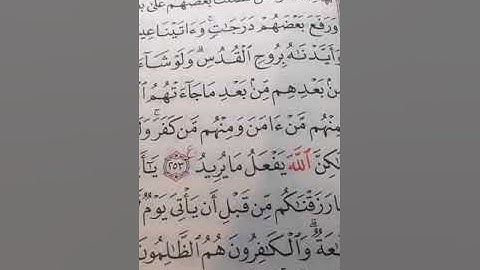 بعضهم على
وَرَفَعَ بَعْضَهُمْ دَرَجَٰتٍ ۚ وَءَاتَيْنَا
وَأَيَّدْنَٰهُ بِرُوحِ ٱلْقُدُسِ ۗ وَلَوْ شَآءَ
مِنۢ بَعْدِهِم مِّنۢ بَعْدِ مَا جَآءَتْهُمُ
مِنْهُم مَّنْ ءَامَنَ وَمِنْهُم مَّن كَفَرَ ۚ
لَٰكِنَّ ٱللَّهَ يَفْعَلُ مَا يُرِيدُ ٢٥٣
رَزَقْنَٰكُم مِّن قَبْلِ أَن يَأْتِىَ يَوْمٌ
وَٱلْكَٰفِرُونَ هُمُ ٱلظَّٰلِمُونَ